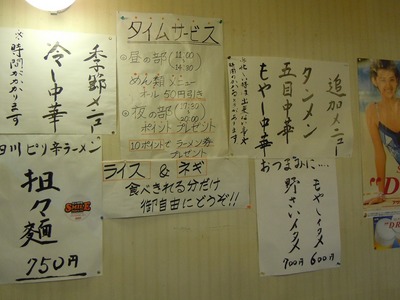 季節メニュー
冷し中華
※時間がかかります
タイムサービス
昼の部 (11:00
14:30
めん類メニュー
オール50円引き
夜の部 (17:30
20:00
ポイントプレゼント
10ポイントでラーメン券
プレゼント
追加メニュー
タンメン
五目中華
もやし中華
四川ピリ辛ラーメン
担々麺
750円
ライス & ネギ
食べきれる分だけ
御自由にどうぞ!!
おつまみに‥‥
もやしイタメ
600円
野さいイタメ
700円